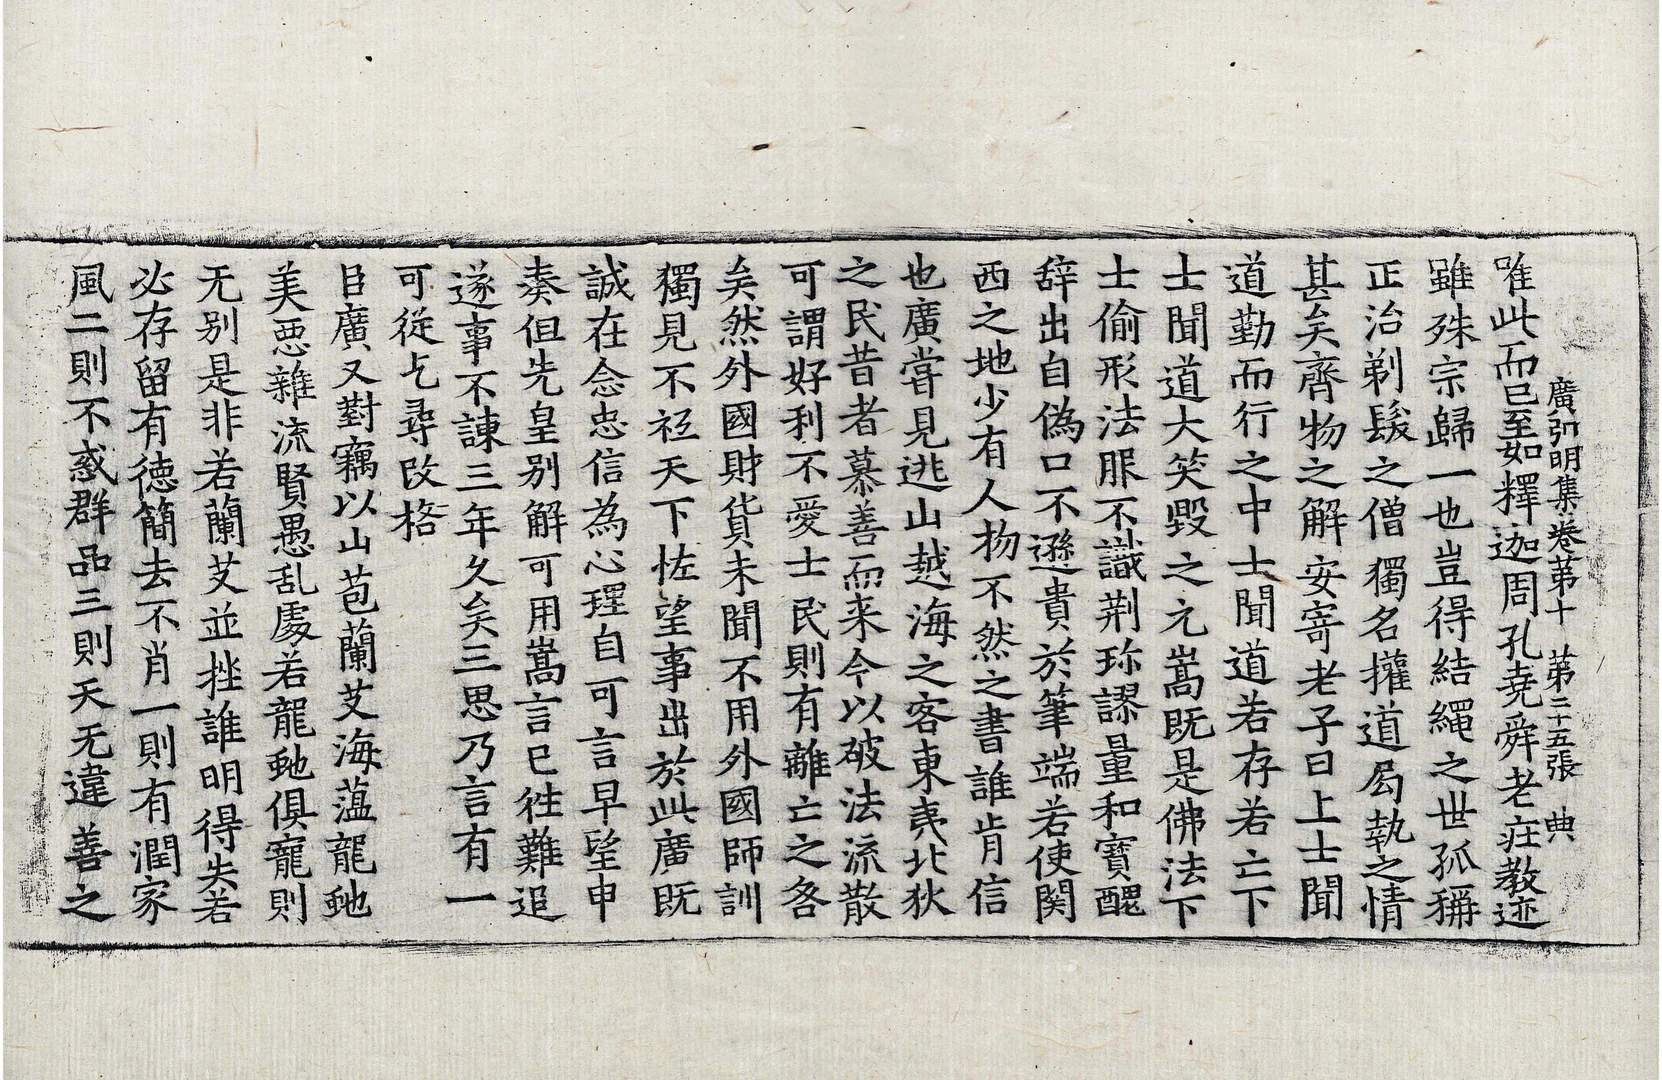 廣弘明集卷第十 第二十五張 典
唯此而已至如釋迦周孔堯舜老庄教迹
雖殊宗歸一也豈得結繩之世孤稱
正治剃髮之僧獨名權道局執之情
甚矣齊物之解安寄老子曰上士聞
道勤而行之中士聞道若存若亡下
士聞道大笑毀之元嵩既是佛法下
士偷形法服不識荆珎謬量和寶醜
辞出自偽口不遜貴於筆端若使関
西之地少有人物不然之書誰肯信
也廣嘗見逃山越海之客東夷北狄
之民昔者慕善而来今以破法流散
可謂好利不愛士民則有離亡之咎
矣然外國財貨未聞不用外國師訓
獨見不祗天下恠望事出於此廣既
誠在念忠信為心理自可言早望申
奏但先皇别解可用嵩言已徃難追
遂事不諫三年久矣三思乃言有一
可從乞尋改格
臣廣又對竊以山苞蘭艾海蕰龍虵
美惡雜流賢愚乱處若龍虵俱寵則
无别是非若蘭艾並挫誰明得失若
必存留有徳簡去不肖一則有潤家
風二則不惑群品三則天无違善之